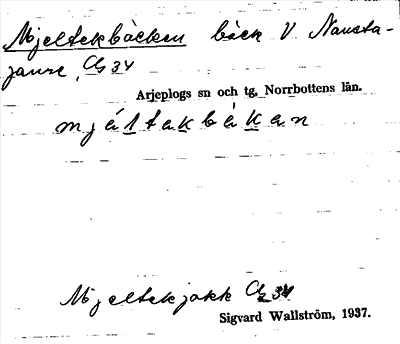 Mjeltekbäcken bäck V Nausta-
jaure, Cb 34
Arjeplogs sn och tg, Norrbottens län.
mjáltakbäkan
Mjeltekjokk Cb 34
Sigvard Wallström, 1937.